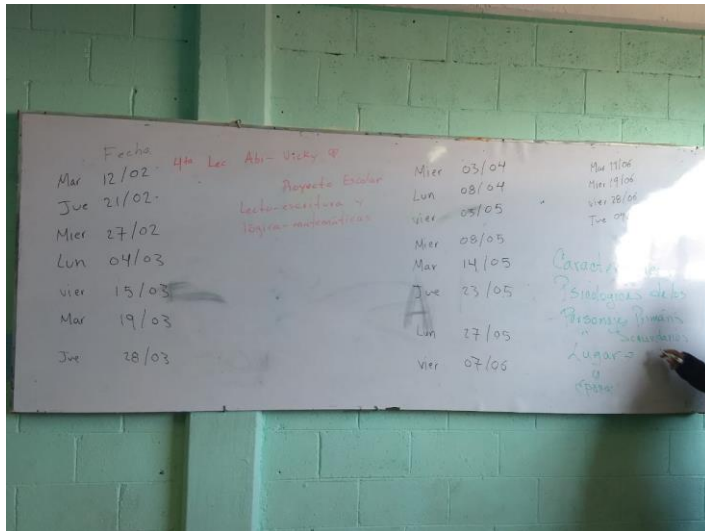 Fecha
Mar 12/02
Jue 21/02
Mier 27/02
Lun 04/03
vier 15/03
Mar 19/03
Jue 28/03
4to Lec Abi - Vicky
Proyecto Escolar
Lecto-escritura y
lógica-matemáticas
Mier 03/04
Lun 08/04
vier 03/05
Mier 08/05
Mar 14/05
Jue 23/05
Lun 27/05
vier 07/06
Mar 11/06
Mier 19/06
vier 28/06
Jue
Psicologicas de los
Personajes Primarios
" Secundarios
Lugar